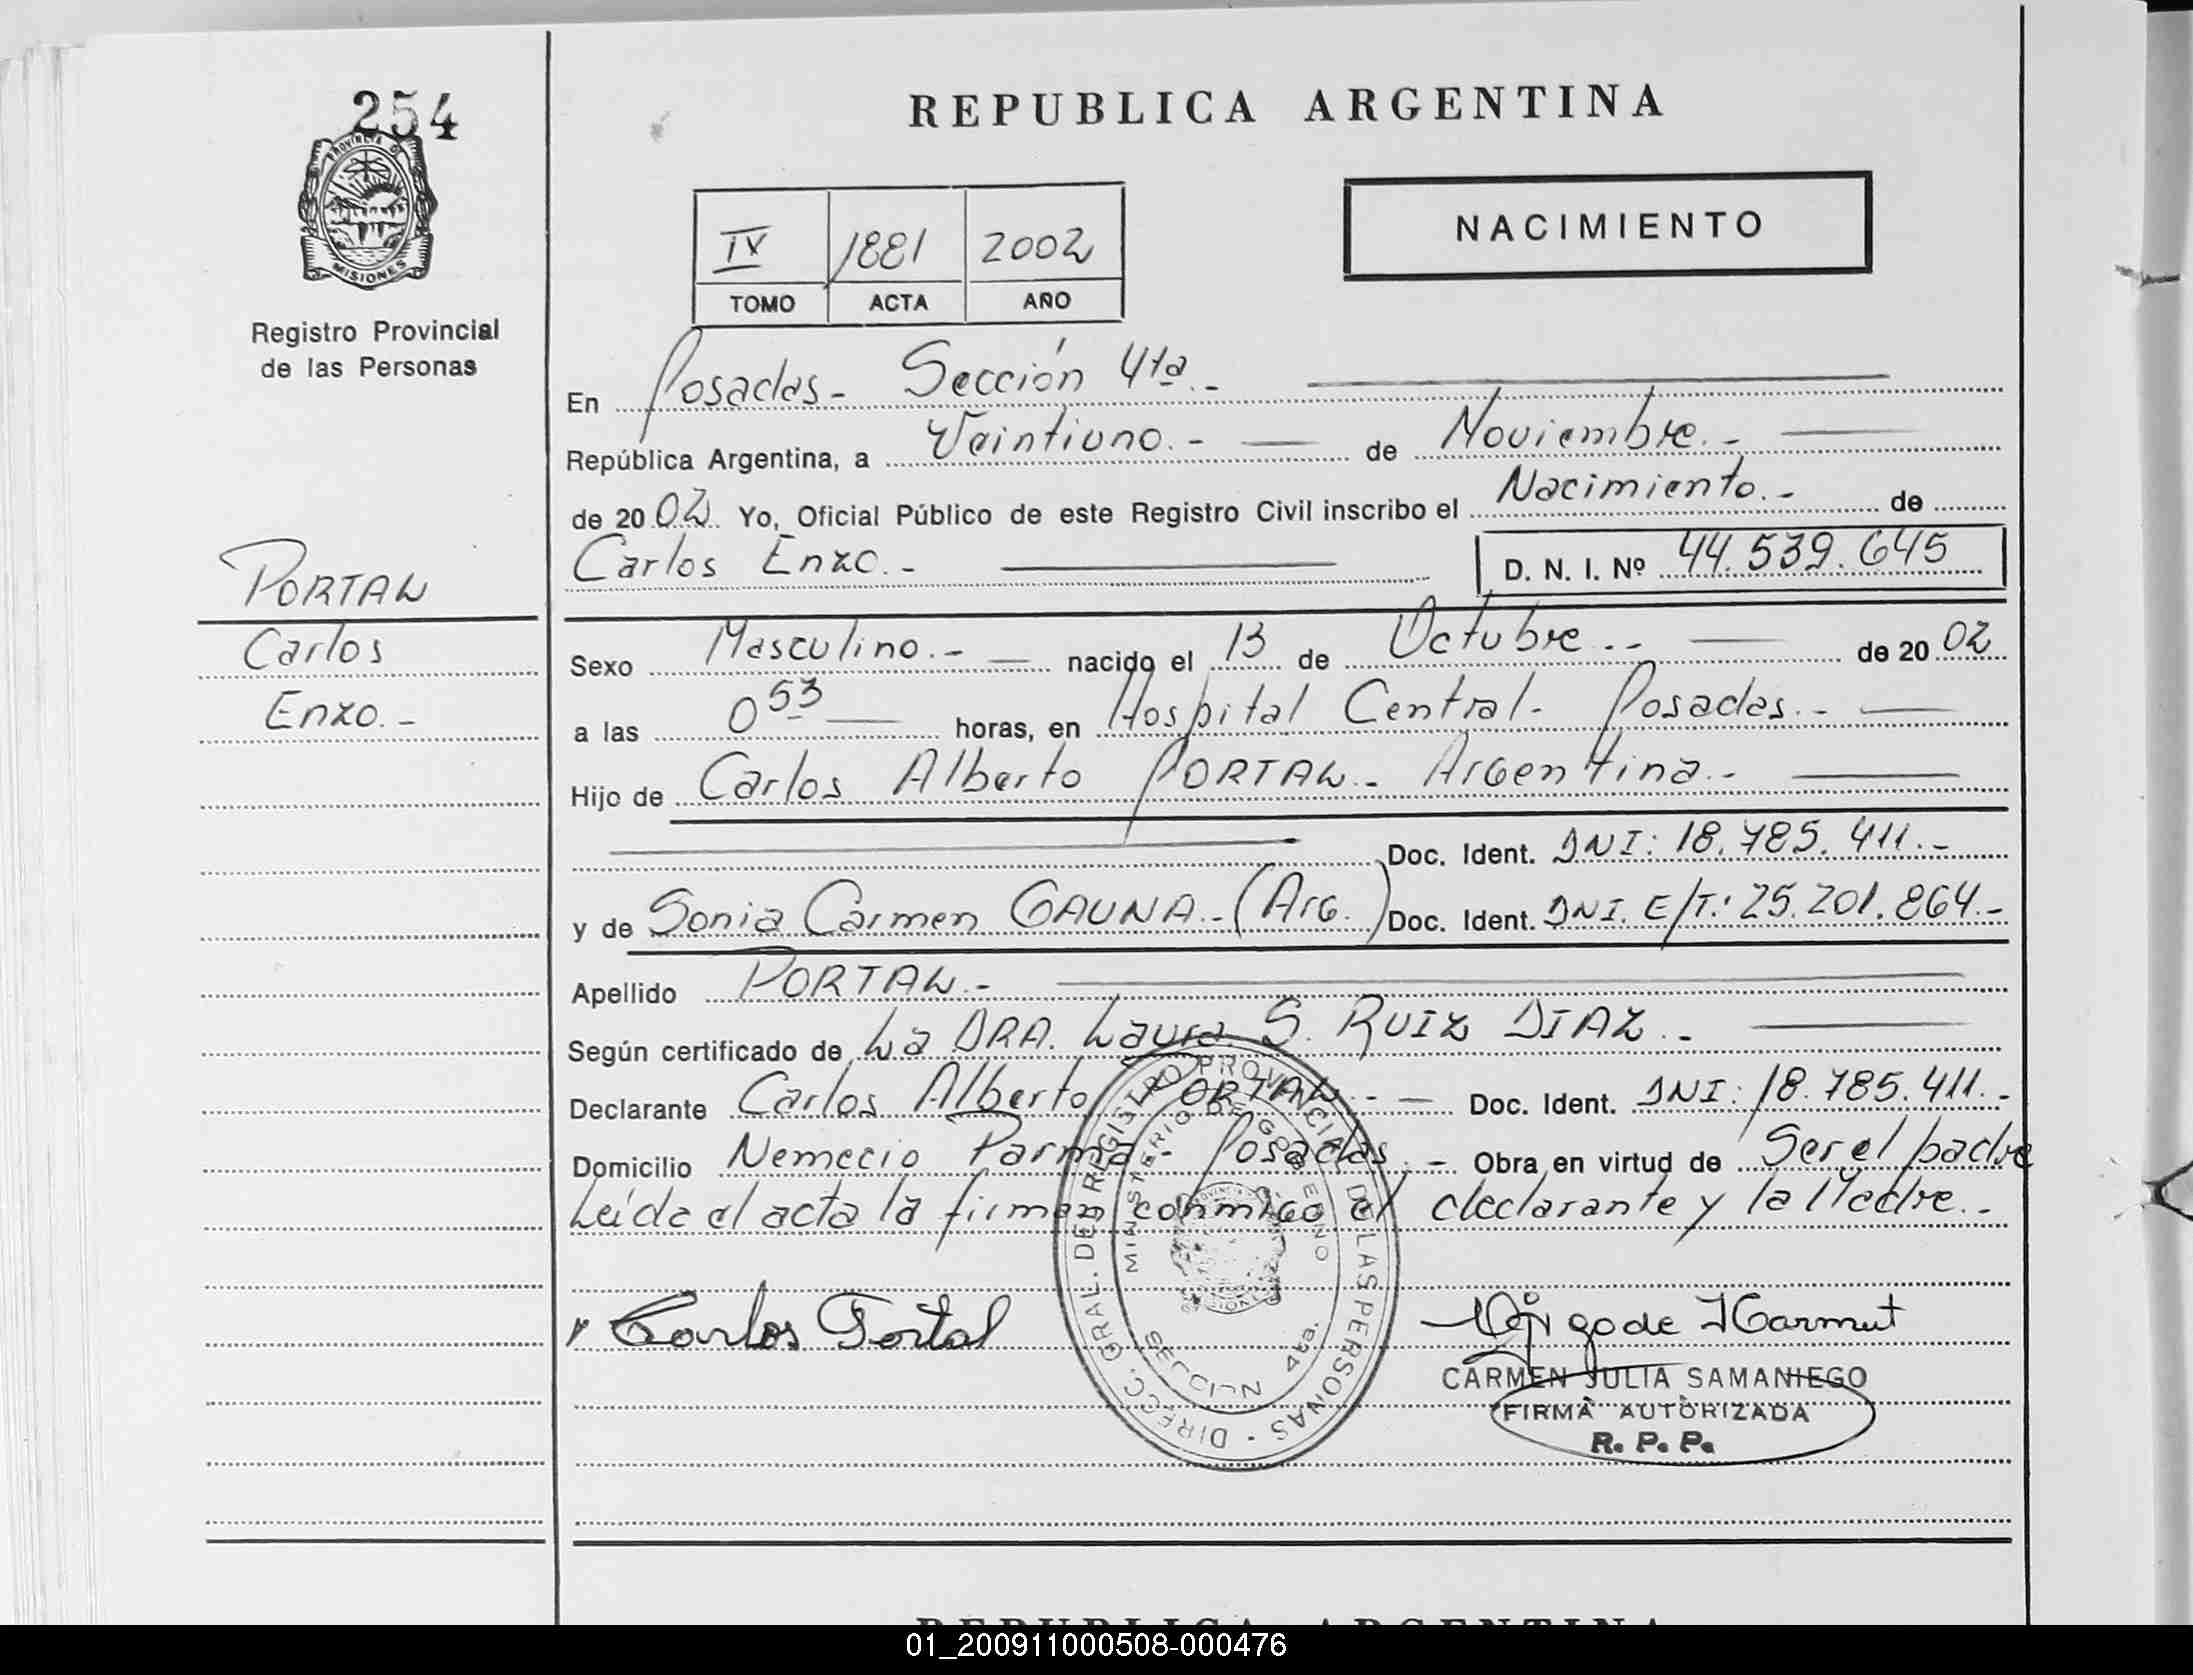 254
PROVINCIA D
MISIONES
Registro Provincial
de las Personas
REPUBLICA ARGENTINA
IV 1881 2002
TOMO ACTA AÑO
NACIMIENTO
En Posadas - Sección 4ta.-
República Argentina, a Veintiuno.- de Noviembre.-
de 2002. Yo, Oficial Público de este Registro Civil inscribo el Nacimiento.- de
Carlos Enzo.- D. N. I. Nº 44.539.645
PORTAL
Carlos
Enzo.-
Sexo Masculino.- nacido el 13 de Octubre.- de 2002
a las 0 53 horas, en Hospital Central- Posadas.-
Hijo de Carlos Alberto PORTAL.- Argentina.-
Doc. Ident. DNI: 18.785.411.-
y de Sonia Carmen GAUNA.- (Arg.) Doc. Ident. DNI. E/T.: 25.201.864.-
Apellido PORTAL.-
Según certificado de La DRA. Laura S. RUIZ DIAZ.-
Declarante Carlos Alberto PORTAL.- Doc. Ident. DNI: 18.785.411.-
Domicilio Nemecio Parma.- Posadas.- Obra en virtud de Ser el padre
Leída el acta la firman conmigo el declarante y la Madre.-
Carlos Portal
DIRECC. GRAL. DEL REGISTRO PROVINCIAL DE LAS PERSONAS
MINISTERIO DE GOBIERNO
SECCION 4ta.
CARMEN JULIA SAMANIEGO
FIRMA AUTORIZADA
R. P. P.
REPUBLICA ARGENTINA
01_200911000508-000476